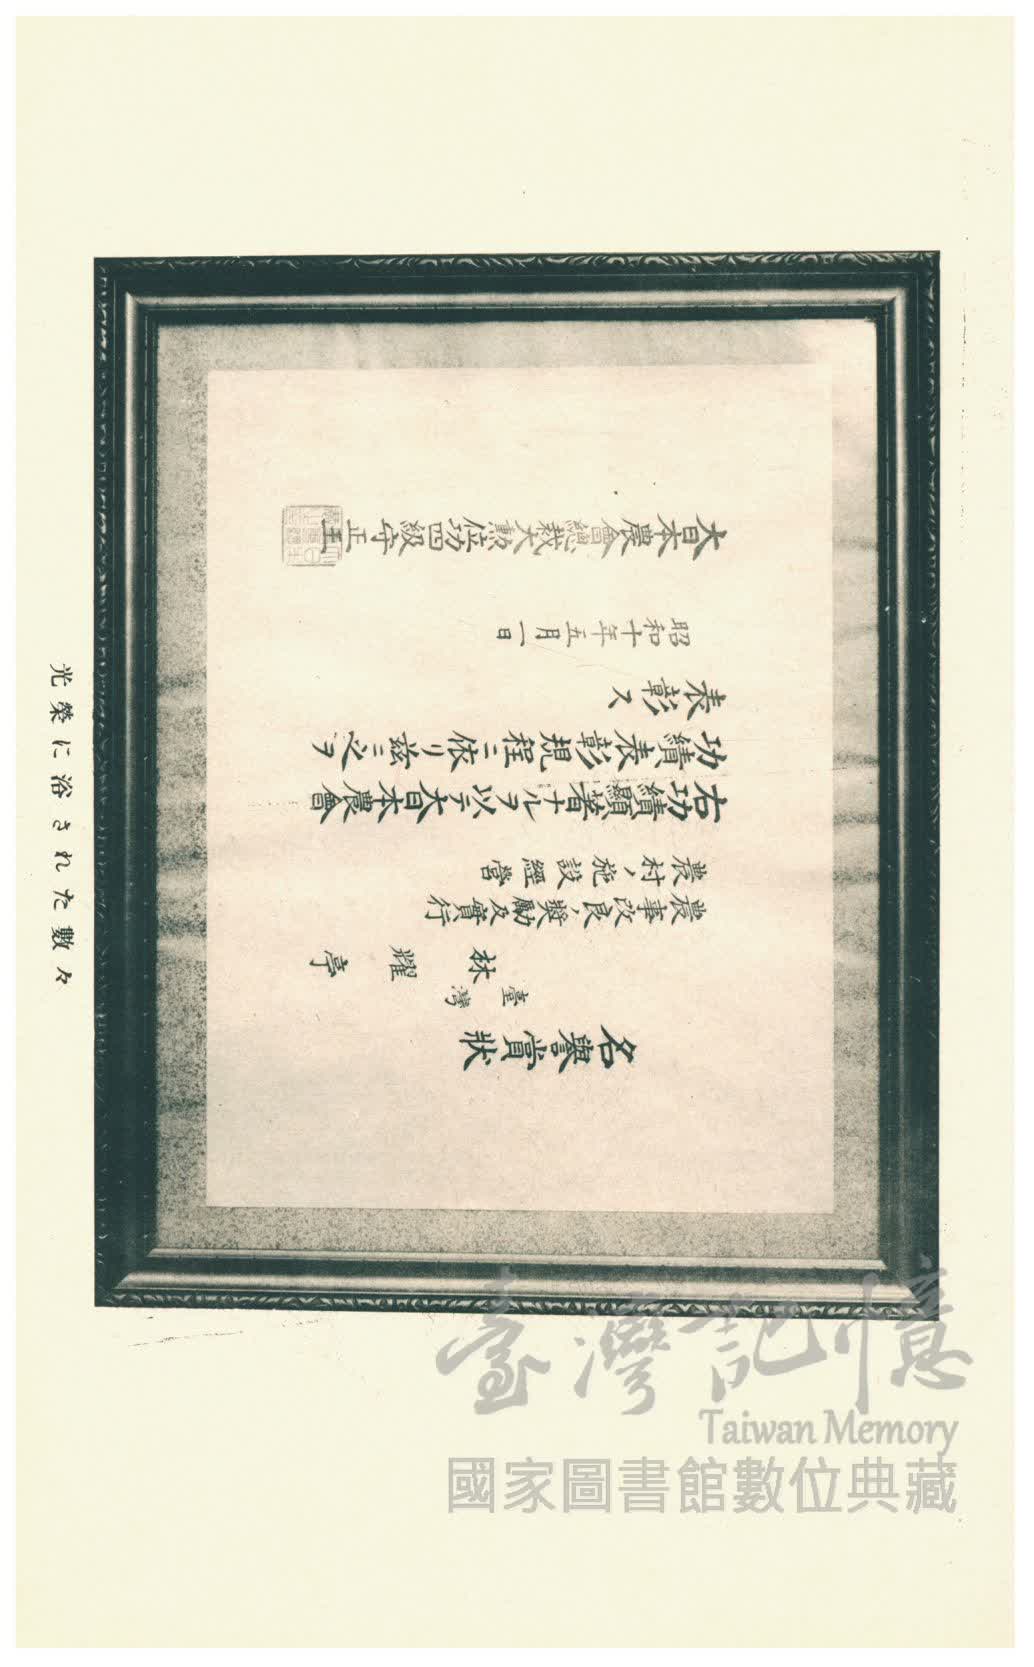 名譽賞狀
臺灣
林耀亭
農事改良ノ奬勵及實行
農村ノ施設經營
右功績顯著ナルヲ以テ大日本農會
功績表彰規程ニ依リ茲ニ之ヲ
表彰ス
昭和十年五月一日
大日本農會總裁大勲位功四級守正王
光榮に浴された數々
臺灣記憶
Taiwan Memory
國家圖書館數位典藏